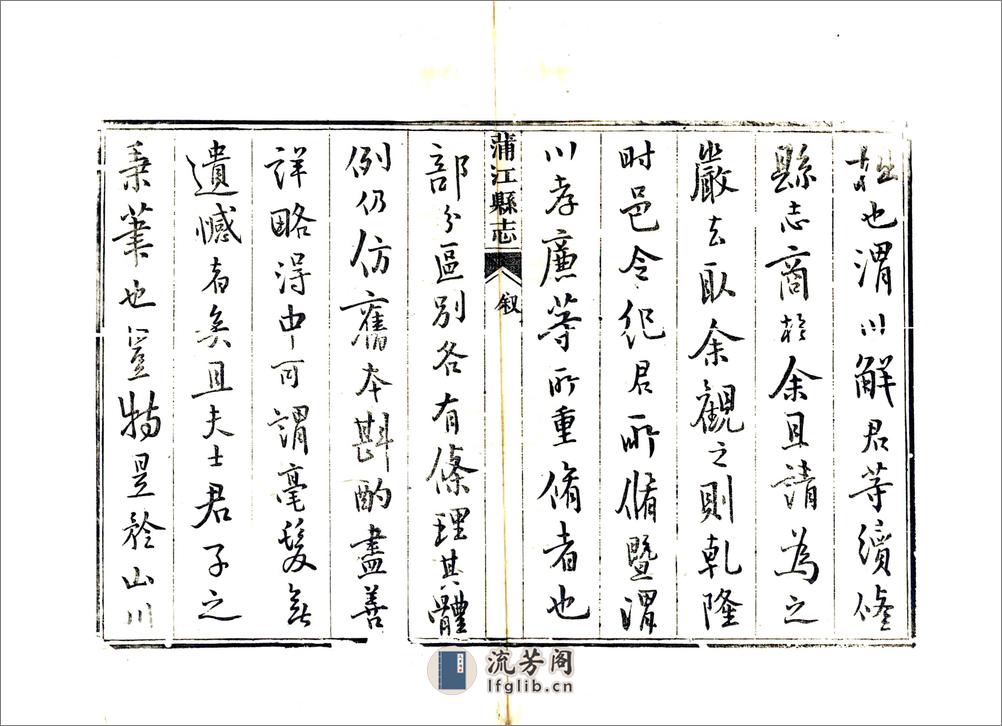 也渭川解君等續修
縣志商於余且請為之
嚴去取余觀之則乾隆
时邑令紀君所脩暨渭
川孝廉等所重脩者也
蒲江縣志
叙
部分區別各有條理其體
例仍仿舊本斟酌盡善
詳略得中可謂毫髮無
遺憾者矣且夫士君子之
秉筆也豈特於山川
流芳阁
lfglib.cn